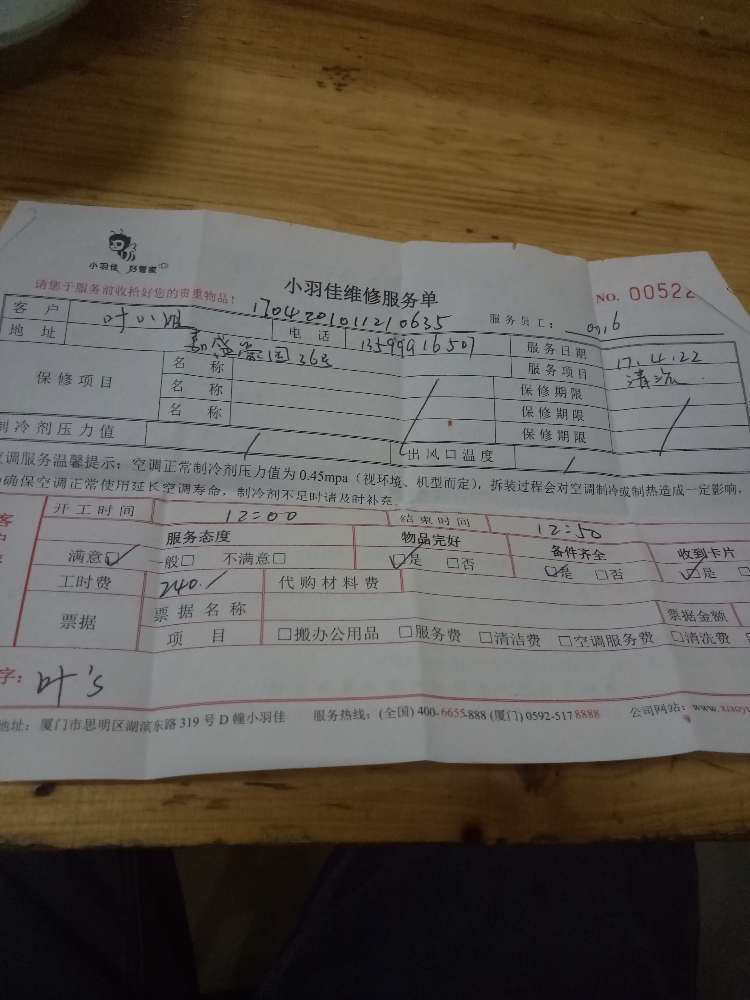 小羽佳 好管家
小羽佳维修服务单
NO. 00522
请您于服务前收拾好您的贵重物品!
1704201011210635
服务员工:
客户 叶小姐 电话 13599916507 服务日期 17.4.22
地址 36号 服务项目 清洗
保修项目 名称 保修期限
名称 保修期限
名称 保修期限
制冷剂压力值 / 出风口温度 /
空调服务温馨提示:空调正常制冷剂压力值为 0.45mpa(视环境、机型而定),拆装过程会对空调制冷或制热造成一定影响,
确保空调正常使用延长空调寿命,制冷剂不足时请及时补充.
开工时间 12:00 结束时间 12:50
服务态度 物品完好 备件齐全 收到卡片
满意☑ 一般□ 不满意□ ☑是 □否 ☑是 □否 ☑是 □
工时费 240./ 代购材料费
票据 票据名称 票据金额
项目 □搬办公用品 □服务费 □清洁费 □空调服务费 □清洗费
字: 叶's
地址:厦门市思明区湖滨东路 319 号 D 幢小羽佳 服务热线:(全国) 400-6655-888 (厦门) 0592-5178888 公司网站:www.xiaoyu